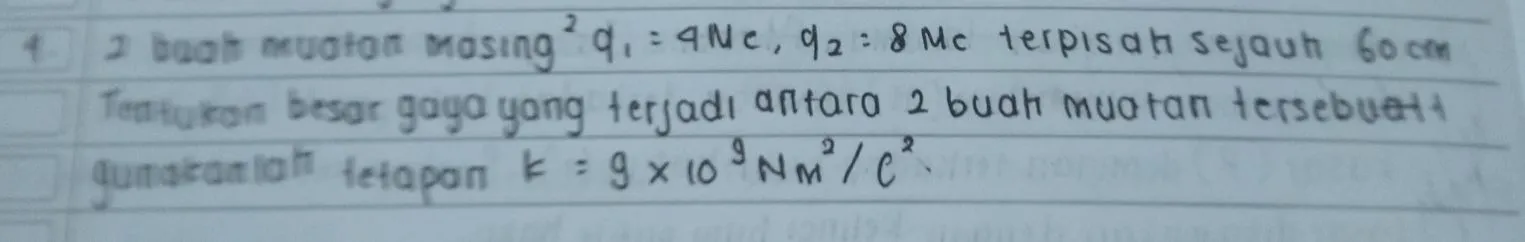 1 2 buah muatan masing² q₁ = 4Mc, q₂ = 8 Mc terpisah sejauh 60 cm
Tentukan besar gaya yang terjadi antara 2 buah muatan tersebut
gunakanlah tetapan k = 9 x 10⁹ Nm²/C².